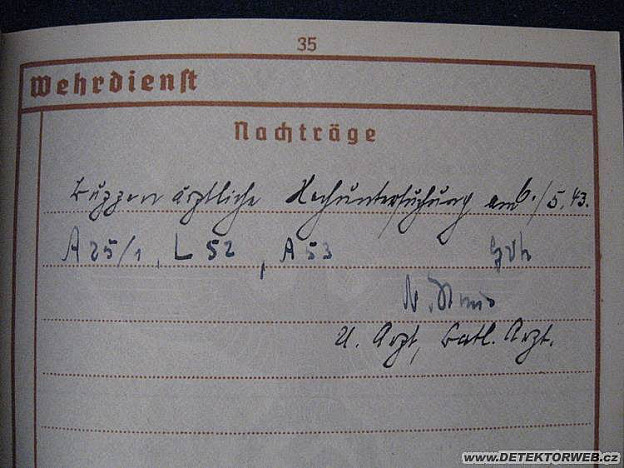 35
Wehrdienst
Nachträge
Truppenärztliche Nachuntersuchung am 6./5.43.
A 25/1, L 52, A 53 gvh
U. Arzt, Batl. Arzt.
WWW.DETEKTORWEB.cz